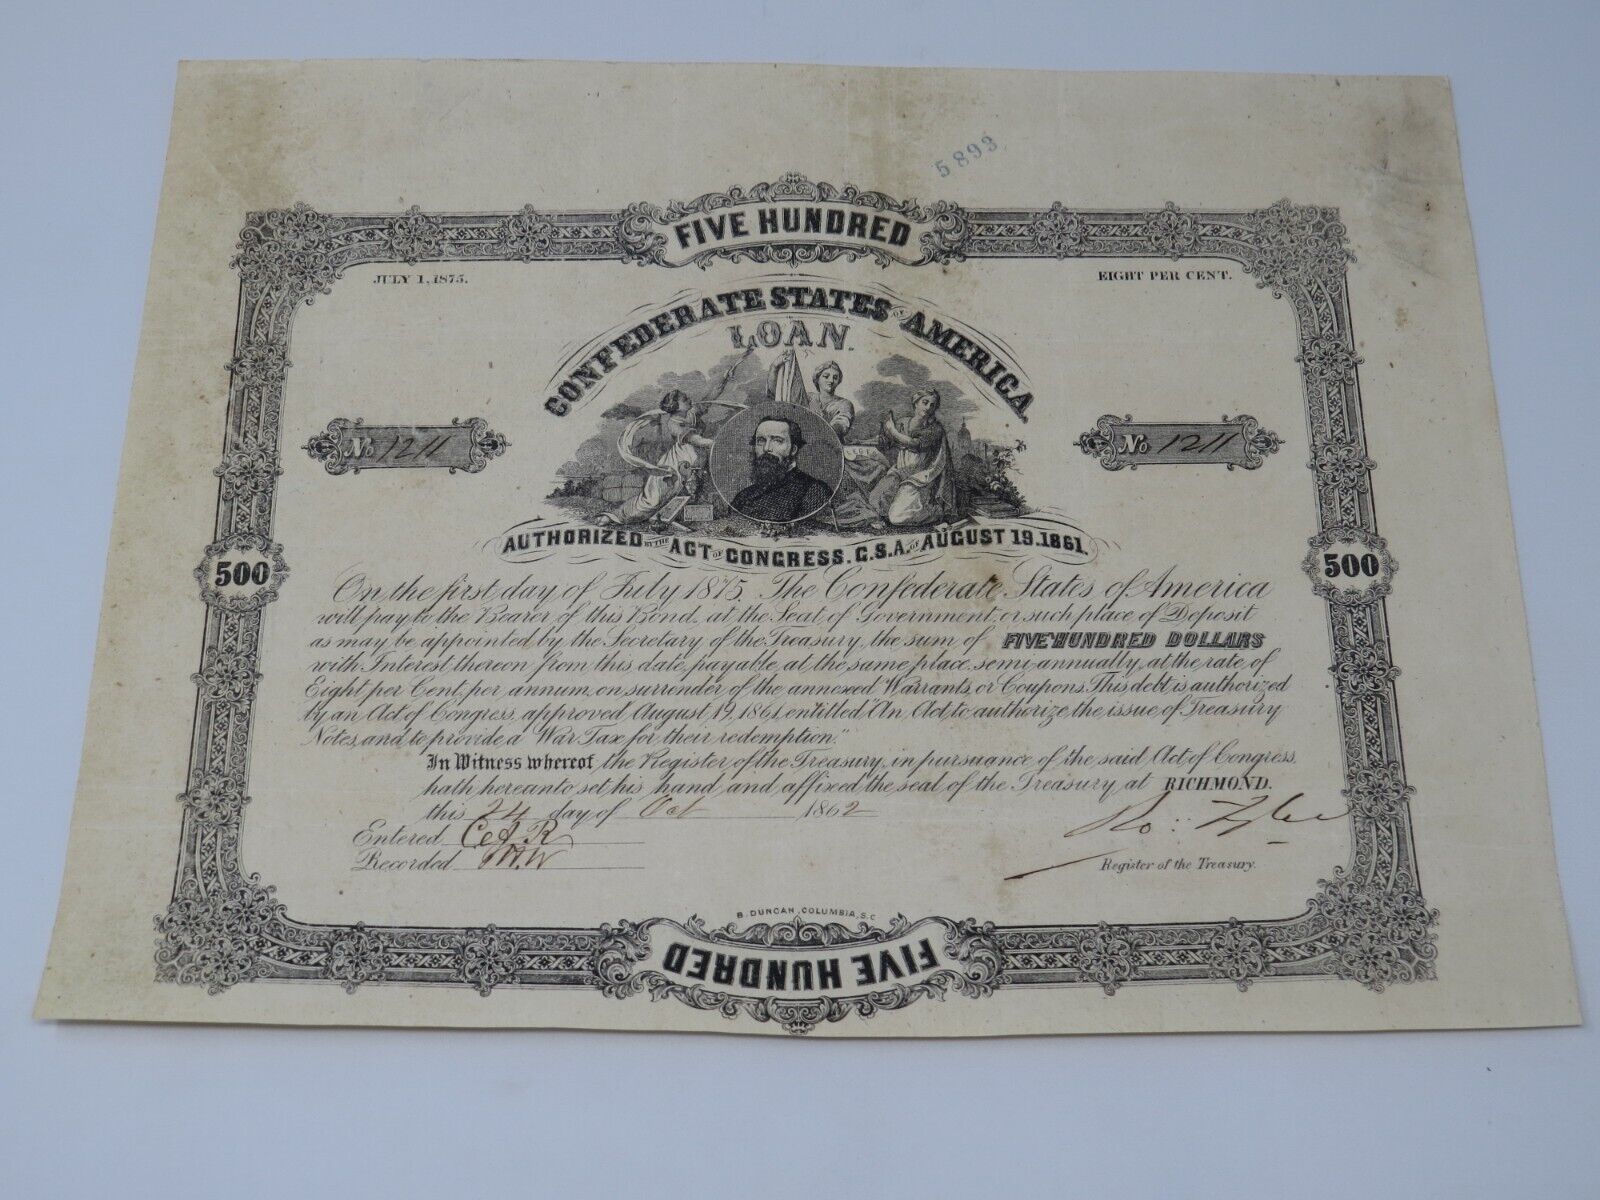 5893
FIVE HUNDRED
JULY 1, 1875.
EIGHT PER CENT.
CONFEDERATE STATES OF AMERICA,
LOAN.
No 1211
No 1211
AUTHORIZED BY THE ACT OF CONGRESS. C.S.A. OF AUGUST 19.1861.
500
500
On the first day of July 1875, The Confederate States of America
will pay to the Bearer of this Bond, at the Seat of Government, or such place of Deposit
as may be appointed by the Secretary of the Treasury, the sum of FIVE HUNDRED DOLLARS
with Interest thereon from this date, payable at the same place, semi-annually, at the rate of
Eight per Cent, per annum, on surrender of the annexed Warrants, or Coupons. This debt is authorized
by an Act of Congress, approved August 19, 1861, entitled "An Act, to authorize the issue of Treasury
Notes, and to provide a War Tax for their redemption."
In Witness whereof, the Register of the Treasury, in pursuance of the said Act of Congress,
hath hereunto set his hand and affixed the seal of the Treasury at RICHMOND.
this 24 day of Oct 1862
Entered C A R
Ro: Tyler
Recorded M.W
Register of the Treasury.
B. DUNCAN, COLUMBIA, S.C
FIVE HUNDRED